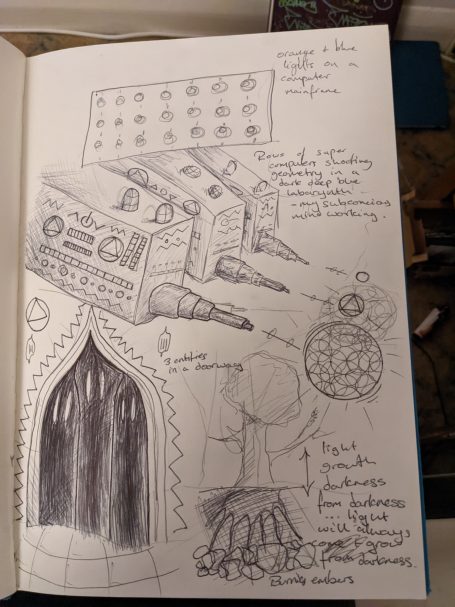 orange + blue
lights on a
computer
mainframe
Rows of super
computers shooting
geometry in a
dark deep blue
labarynth -
- my subconcious
mind working.
3 entities
in a doorway
light
growth
darkness
from darkness
... light
will always
come + grow
from darkness.
Burning embers